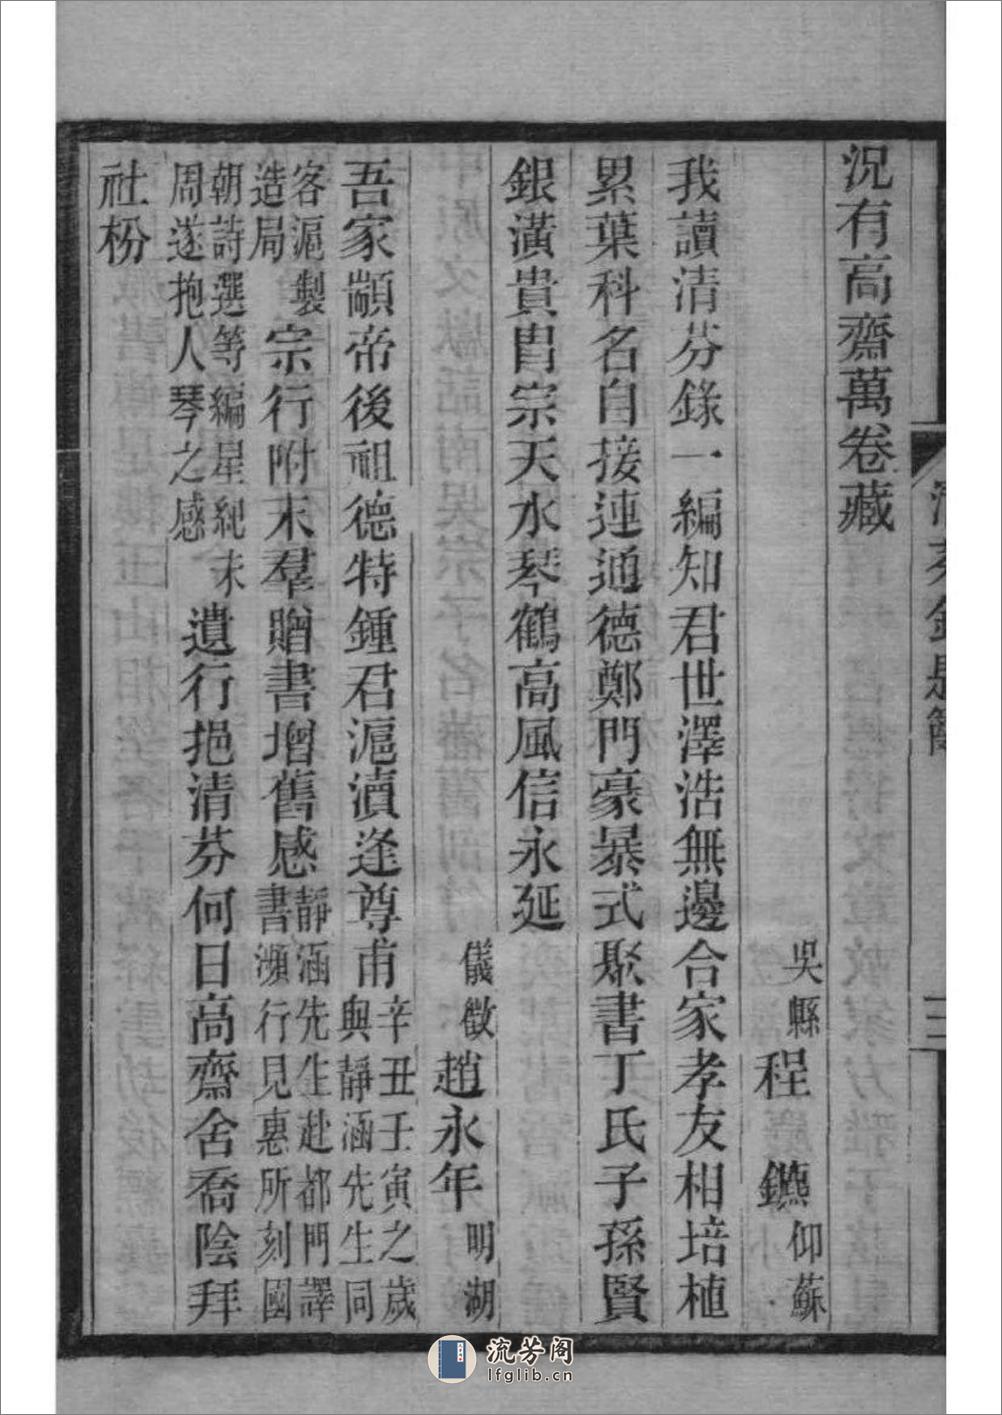 況有高齋萬卷藏
吳縣程鑣仰蘇
我讀清芬錄一編知君世澤浩無邊合家孝友相培植
累葉科名自接連通德鄭門豪暴式聚書丁氏子孫賢
銀潢貴胄宗天水琴鶴高風信永延
儀徵趙永年明湖
吾家顓帝後祖德特鍾君滬瀆逢尊甫辛丑壬寅之歲與靜涵先生同
客滬製造局宗行附末羣贈書增舊感靜涵先生赴都門譯書瀕行見惠所刻國
朝詩選等編星紀未周遂抱人琴之感遺行挹清芬何日高齋舍喬陰拜
社枌
清芬錄題
三
流芳阁
lfglib.cn